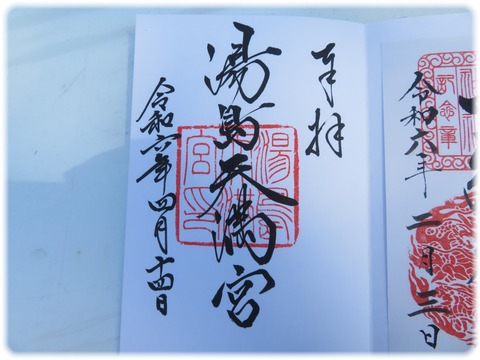 令和六年二月三日
奉拝
湯島天満宮
令和六年四月十四日